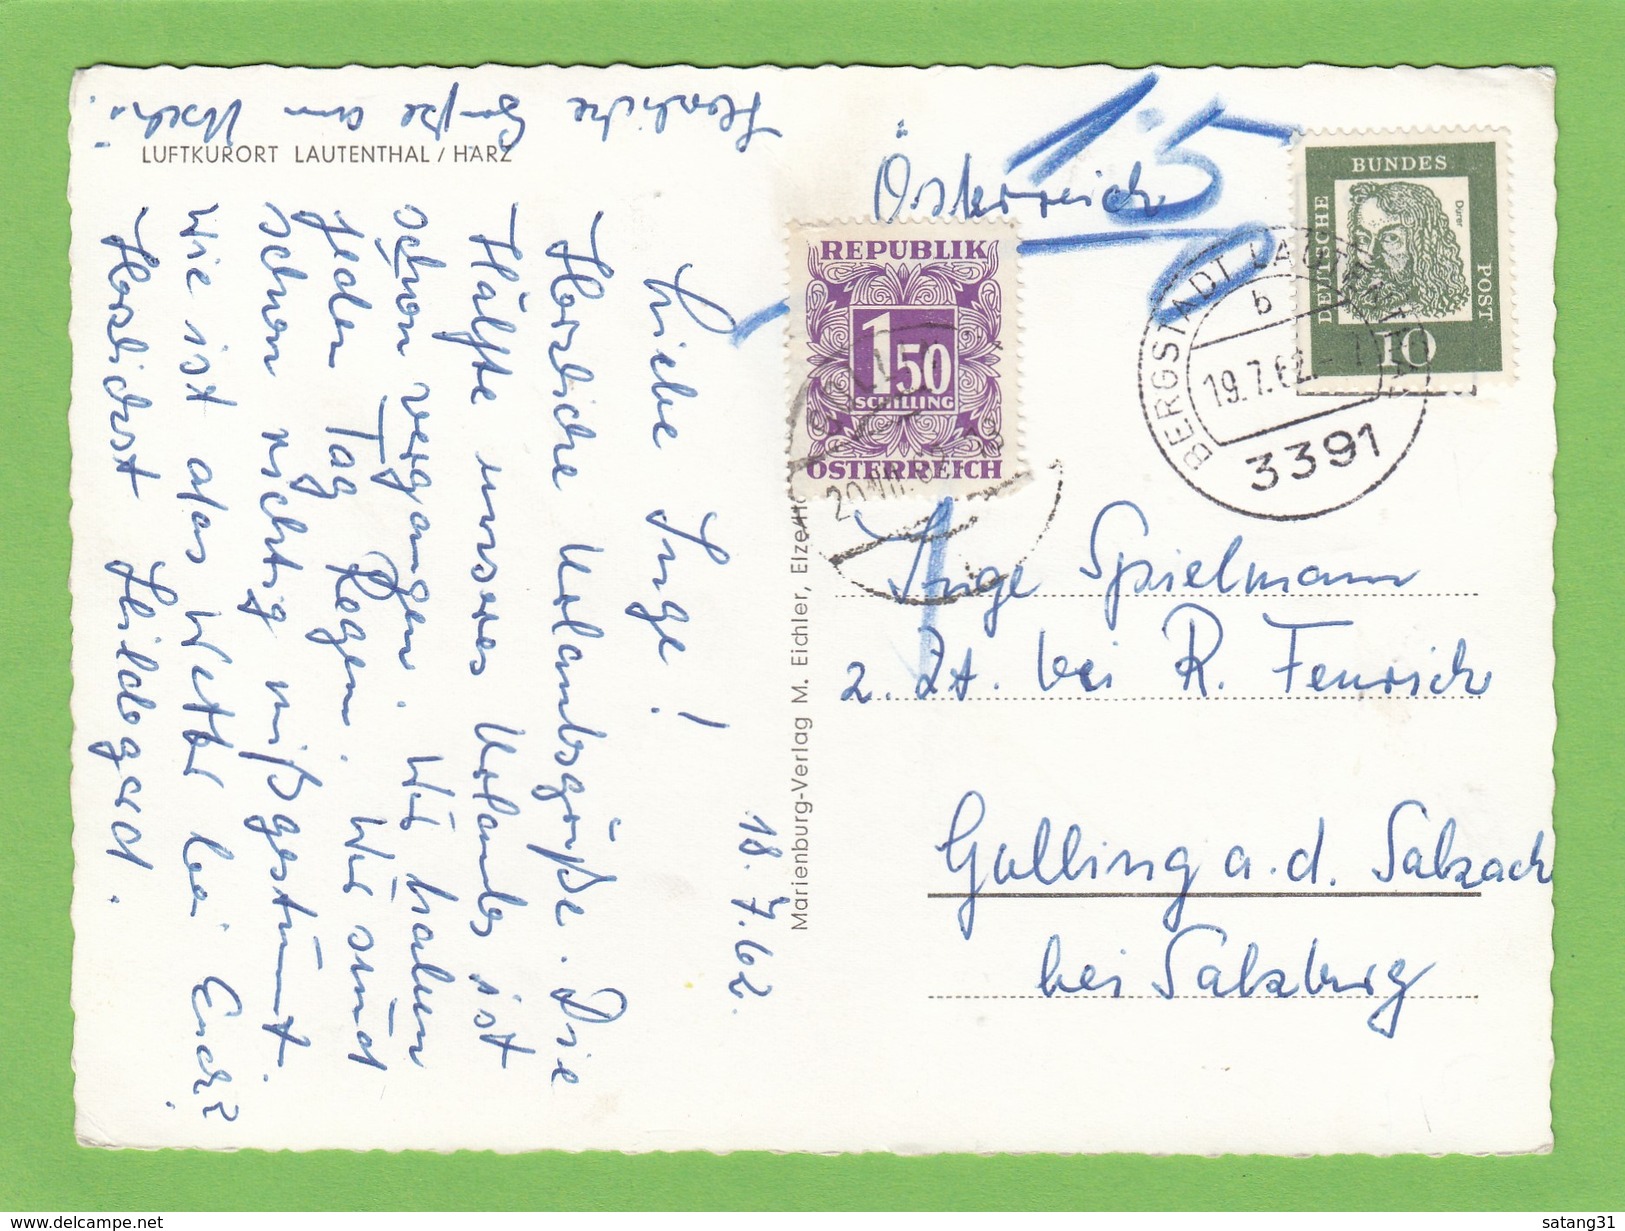 Herzliche Grüße an Uschi!
LUFTKURORT LAUTENTHAL / HARZ
18. 7. 62.
Liebe Inge!
Herzliche Urlaubsgrüße. Die
Hälfte unseres Urlaubes ist
schon vergangen. Wir haben
jeden Tag Regen. Wir sind
schon richtig mißgestimmt.
Wie ist das Wetter bei Euch?
Herzlichst Hildegard.
Marienburg-Verlag M. Eichler, Elze/H
Österreich
1.50
REPUBLIK
1 50
SCHILLING
ÖSTERREICH
20.VII.
DEUTSCHE
BUNDES
POST
Dürer
10
BERGSTADT LAUTENTHAL
b
19.7.62.
3391
Inge Spielmann
z. Zt. bei R. Fenrich
Golling a. d. Salzach
bei Salzburg
www.delcampe.net
satang31